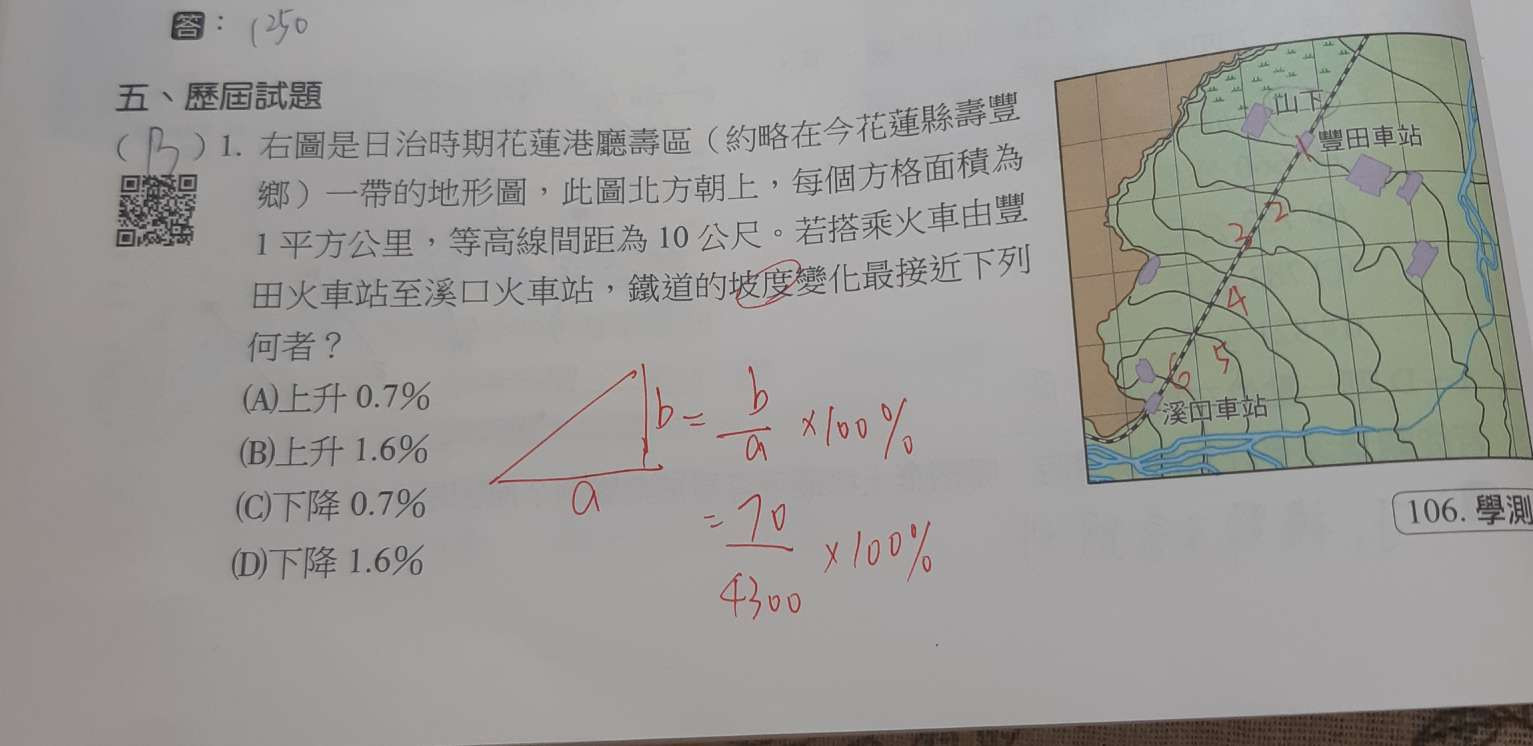 答：1250
五、歷屆試題
（B）1. 右圖是日治時期花蓮港廳壽區（約略在今花蓮縣壽豐
鄉）一帶的地形圖，此圖北方朝上，每個方格面積為
1 平方公里，等高線間距為 10 公尺。若搭乘火車由豐
田火車站至溪口火車站，鐵道的坡度變化最接近下列
何者？
(A)上升 0.7%
(B)上升 1.6%
(C)下降 0.7%
(D)下降 1.6%
b = b/a × 100%
a
= 70/4300 × 100%
山下
豐田車站
1
2
3
4
5
6
溪口車站
106. 學測